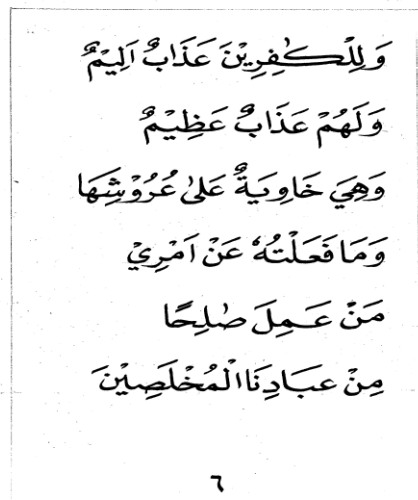 وَلِلْكٰفِرِيْنَ عَذَابٌ اَلِيْمٌ
وَلَهُمْ عَذَابٌ عَظِيْمٌ
وَهِيَ خَاوِيَةٌ عَلىٰ عُرُوْشِهَا
وَمَا فَعَلْتُهٗ عَنْ اَمْرِيْ
مَنْ عَمِلَ صٰلِحًا
مِنْ عِبَادِنَا الْمُخْلَصِيْنَ
٦